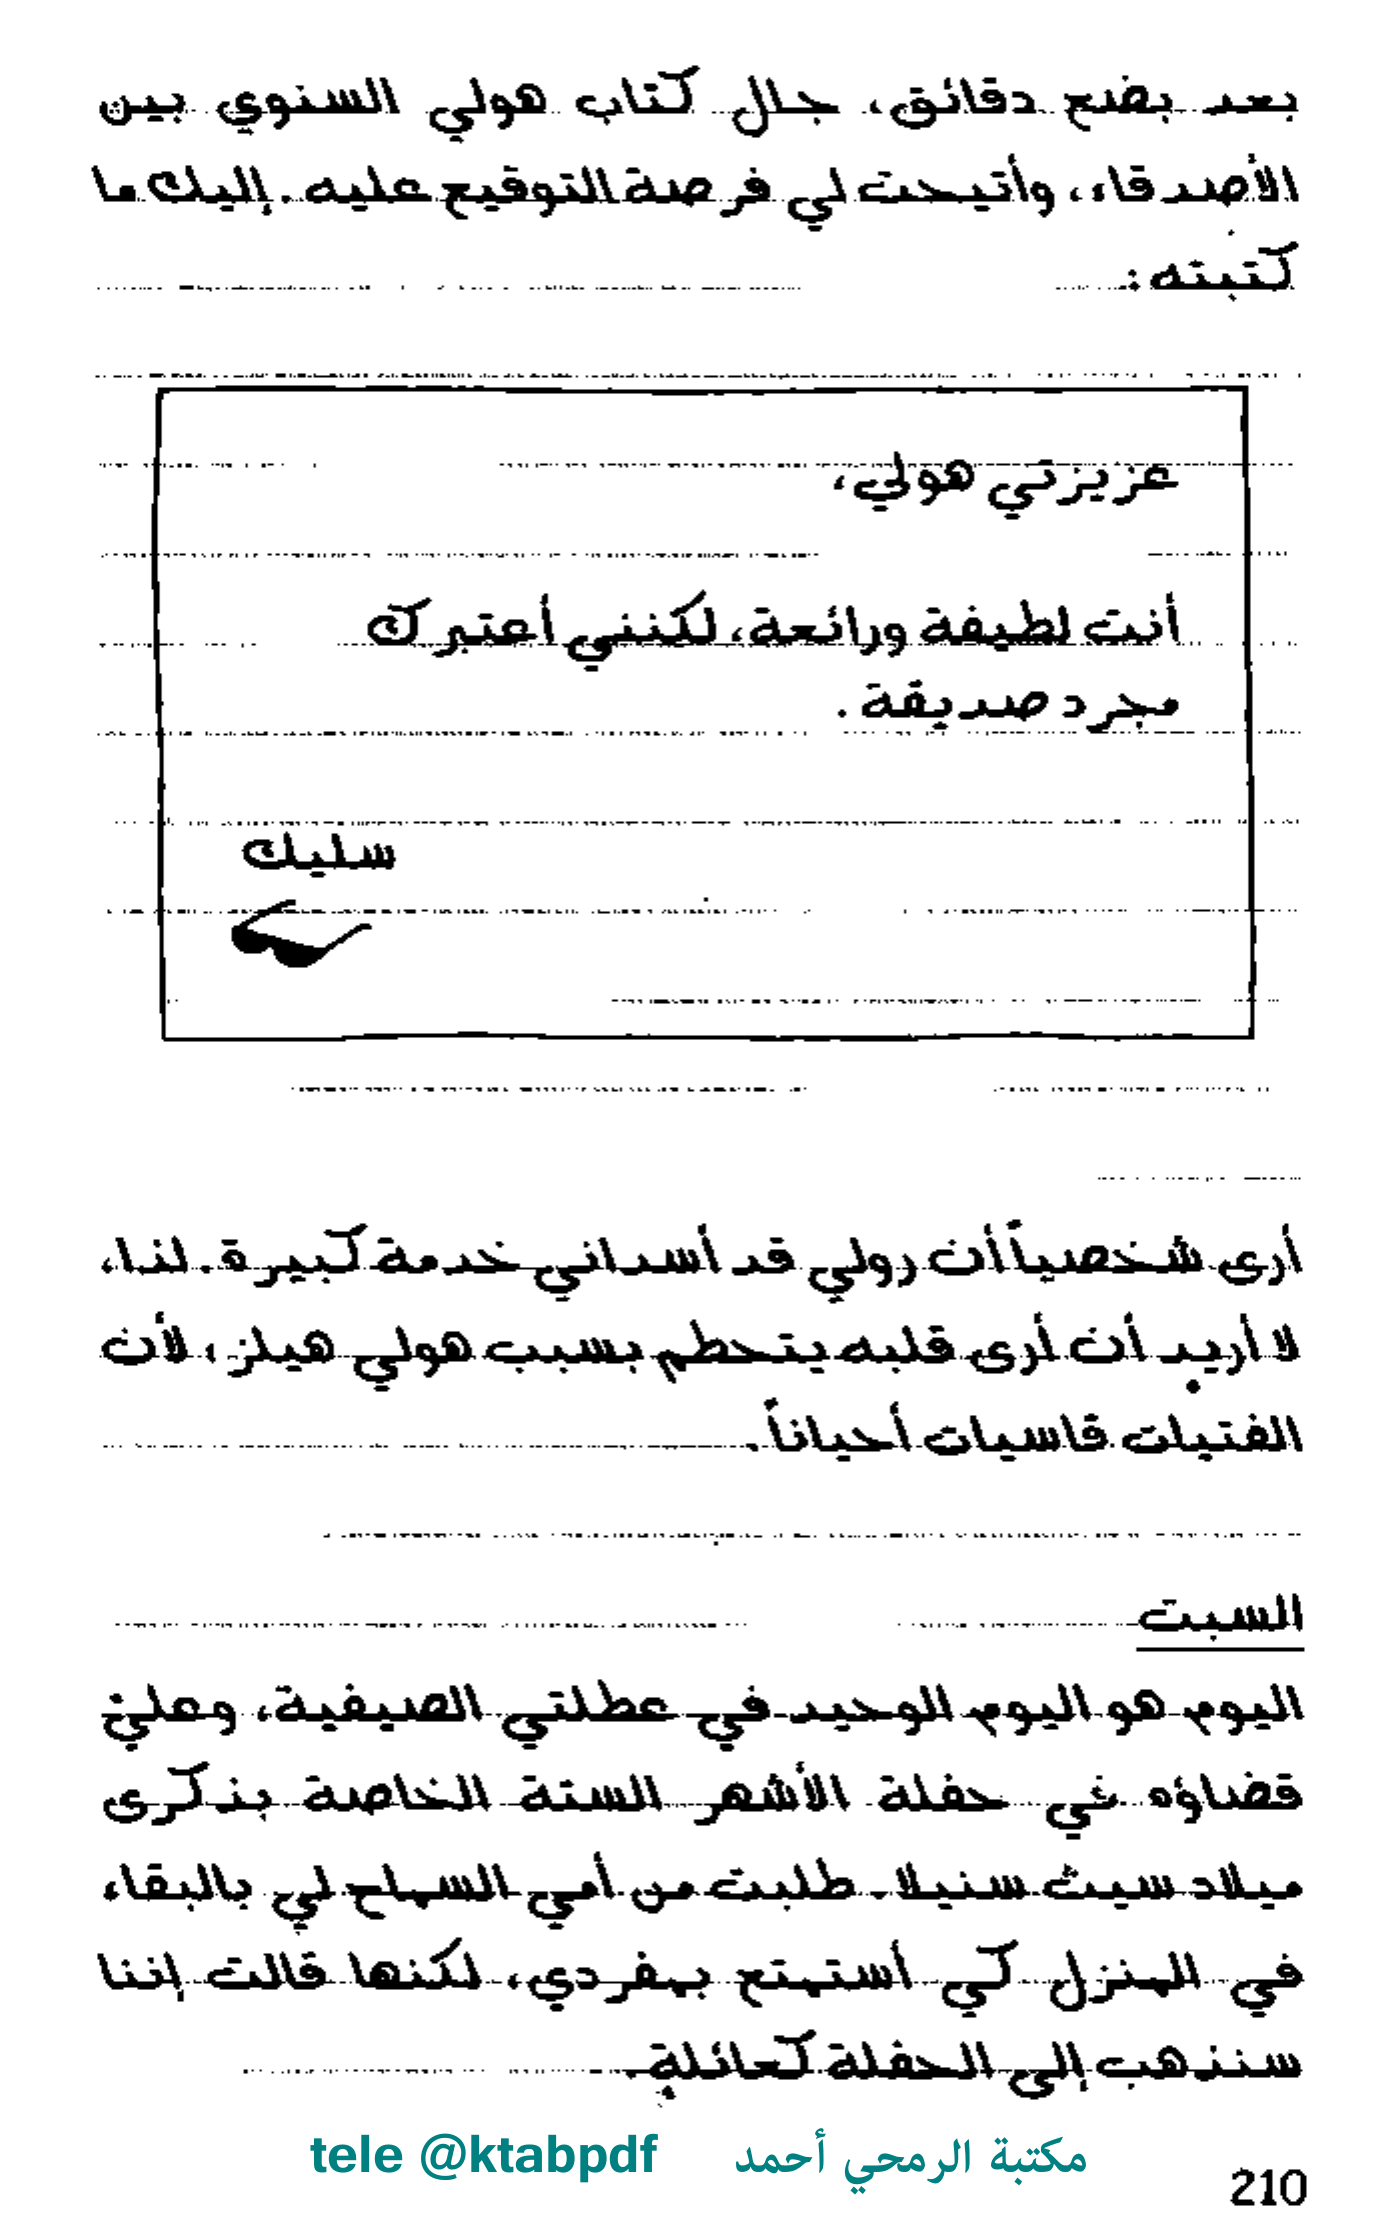 بعد بضع دقائق، جال كتاب هولي السنوي بين
الأصدقاء، وأتيحت لي فرصة التوقيع عليه. إليك ما
كتبته:
عزيزتي هولي،
أنت لطيفة ورائعة، لكنني أعتبرك
مجرد صديقة.
سليك
أرى شخصياً أن رولي قد أسداني خدمة كبيرة. لذا،
لا أريد أن أرى قلبه يتحطم بسبب هولي هيلز، لأن
الفتيات قاسيات أحياناً.
السبت
اليوم هو اليوم الوحيد في عطلتي الصيفية، وعليّ
قضاؤه في حفلة الأشهر الستة الخاصة بذكرى
ميلاد سيث سنيلا. طلبت من أمي السماح لي بالبقاء
في المنزل كي أستمتع بمفردي، لكنها قالت إننا
سنذهب إلى الحفلة كعائلة.
مكتبة الرمحي أحمد tele @ktabpdf
210